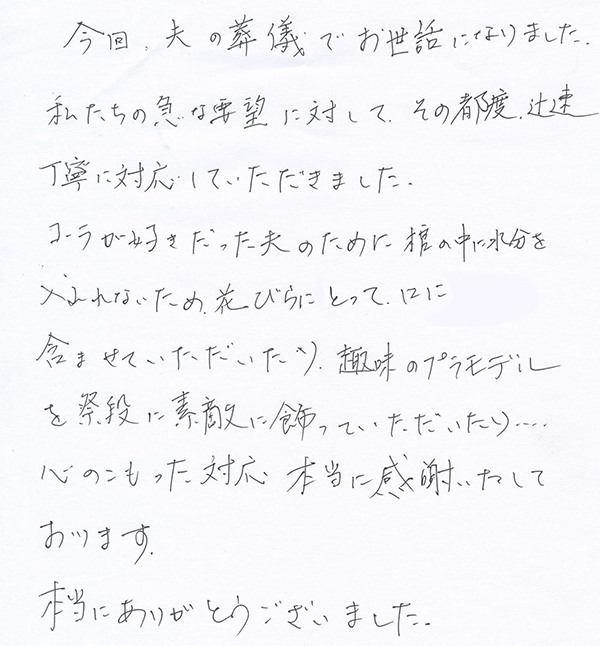 今回、夫の葬儀でお世話になりました。
私たちの急な要望に対して、その都度、迅速
丁寧に対応していただきました。
コーラが好きだった夫のために棺の中に水分を
入れれないため、花びらにとって、口に
含ませていただいたり、趣味のプラモデル
を祭段に素敵に飾っていただいたり‥‥
心のこもった対応 本当に感謝いたして
おります。
本当にありがとうございました。